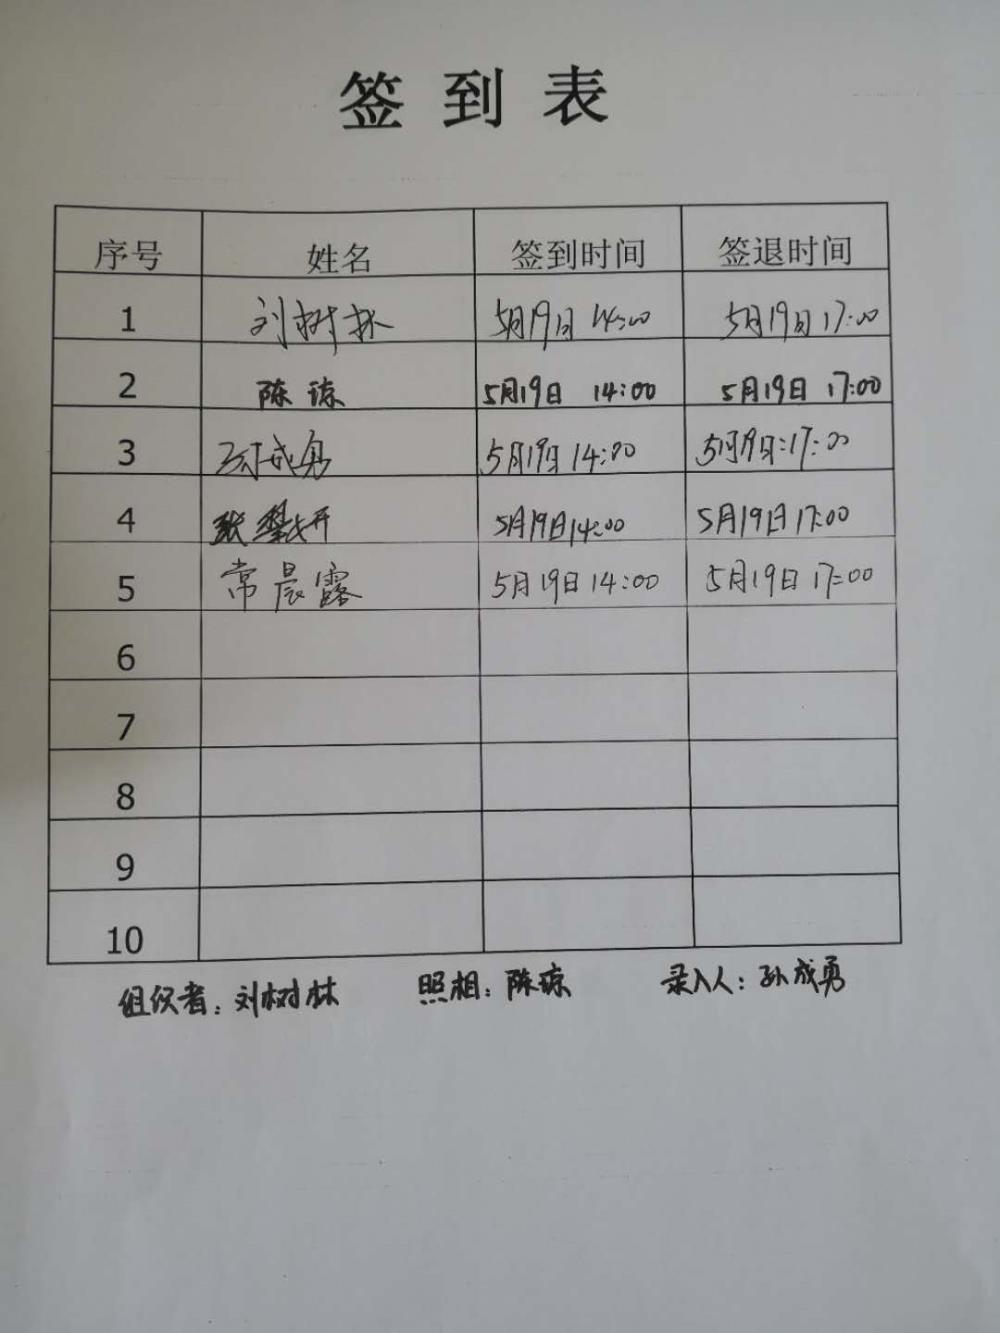 签到表
序号 姓名 签到时间 签退时间
1 刘树林 5月19日 14:00 5月19日 17:00
2 陈琼 5月19日 14:00 5月19日 17:00
3 孙成勇 5月19日 14:00 5月19日:17:00
4 张 5月19日14:00 5月19日17:00
5 常晨露 5月19日 14:00 5月19日 17:00
6
7
8
9
10
组织者:刘树林 照相:陈琼 录入人:孙成勇